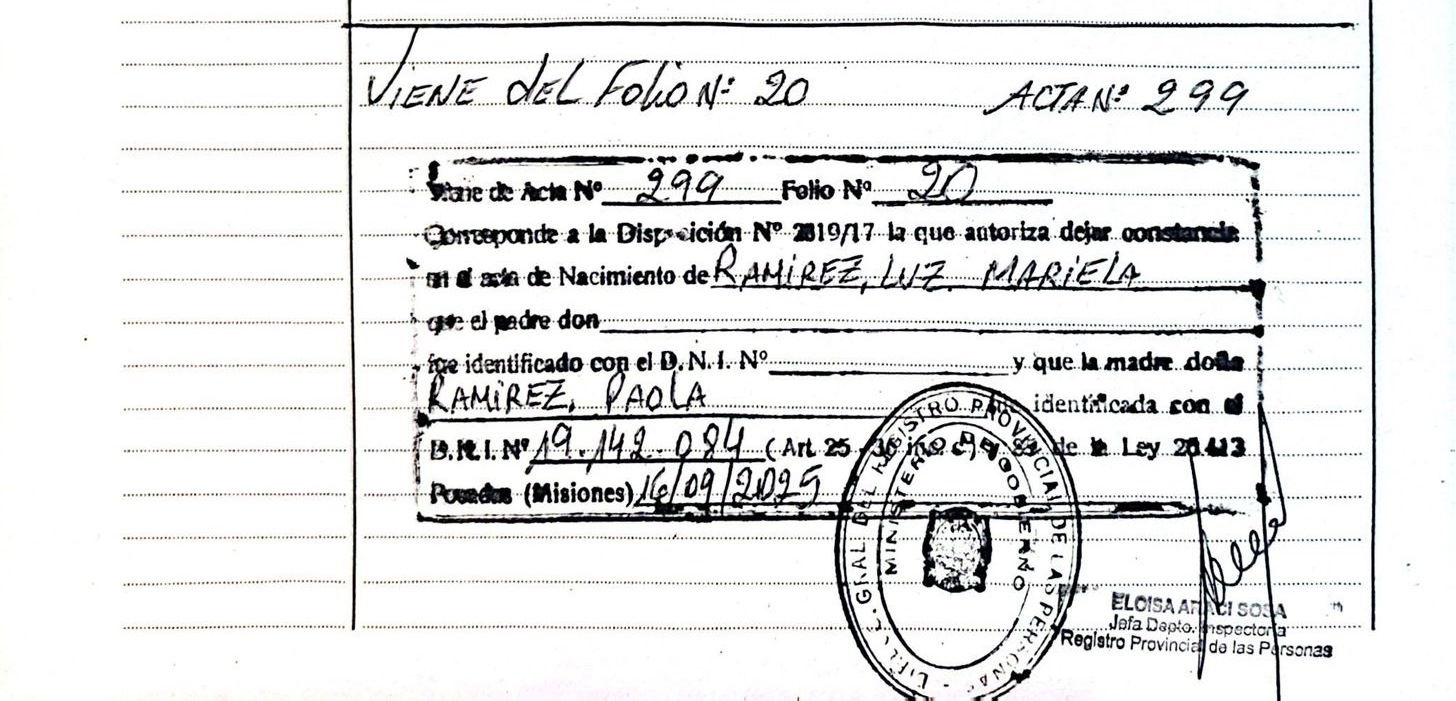 VIENE del Folio Nº 20 ACTA Nº 299
Viene de Acta Nº 299 Folio Nº 20
Corresponde a la Disposición Nº 2819/17 la que autoriza dejar constancia
en el acta de Nacimiento de RAMIREZ, LUZ MARIELA
que el padre don
fue identificado con el D.N.I. Nº y que la madre doña
RAMIREZ, PAOLA identificada con el
D.N.I. Nº 19.142.084 (Art. 25 - 36 inc c) y de la Ley 26.413
Posadas (Misiones) 16/09/2025
GRAL DEL REGISTRO PROVINCIAL DE LAS PERSONAS
MINISTERIO DE GOBIERNO
ELOISA ARACI SOSA
Jefa Depto. Inspectoria
Registro Provincial de las Personas